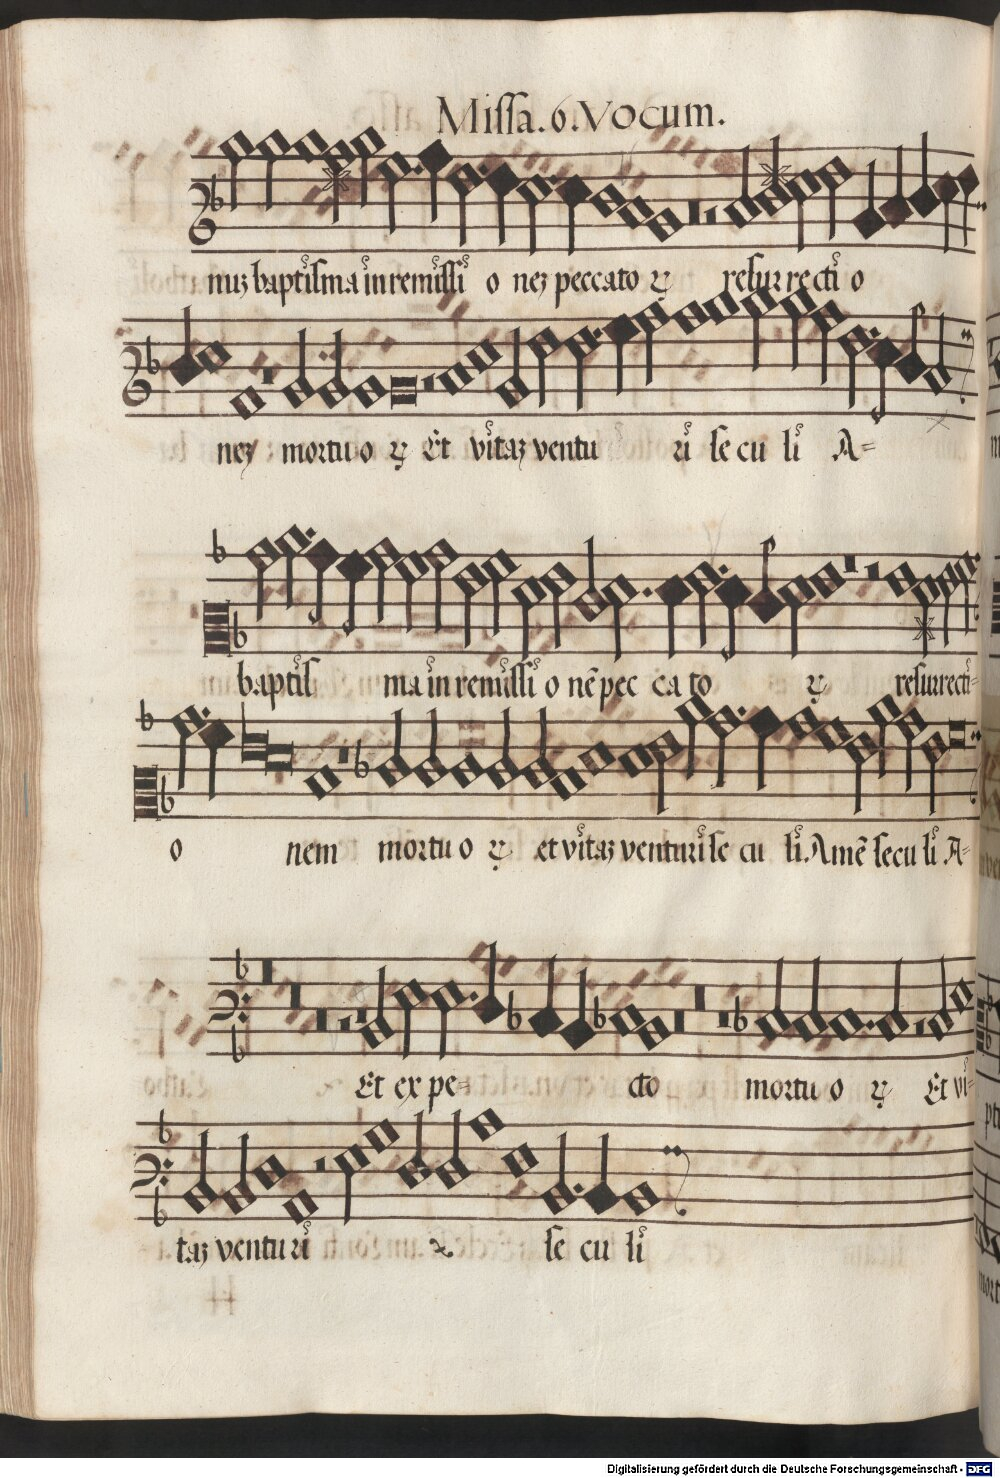 Missa. 6. Vocum.
nuz baptisma in remissi o nez peccato ꝝ resurrecti o
nez mortu o ꝝ Et vitaz ventu ri se cu li A=
baptis ma in remissi o nē pec ca to ꝝ resurrecti=
o nem mortu o ꝝ et vitaz venturi se cu li. Amē secu li A=
Et ex pe= cto mortu o ꝝ Et vi=
taz ventu ri se cu li
Digitalisierung gefördert durch die Deutsche Forschungsgemeinschaft - DFG